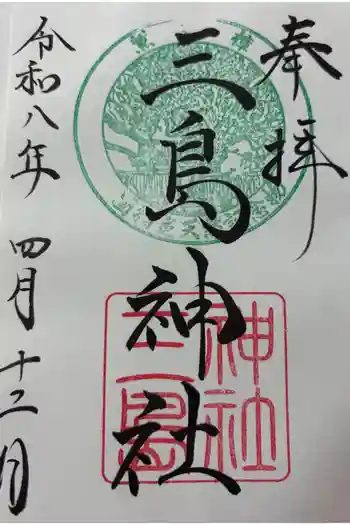 奉拝
三島神社
三島神社
令和八年 四月 十二月